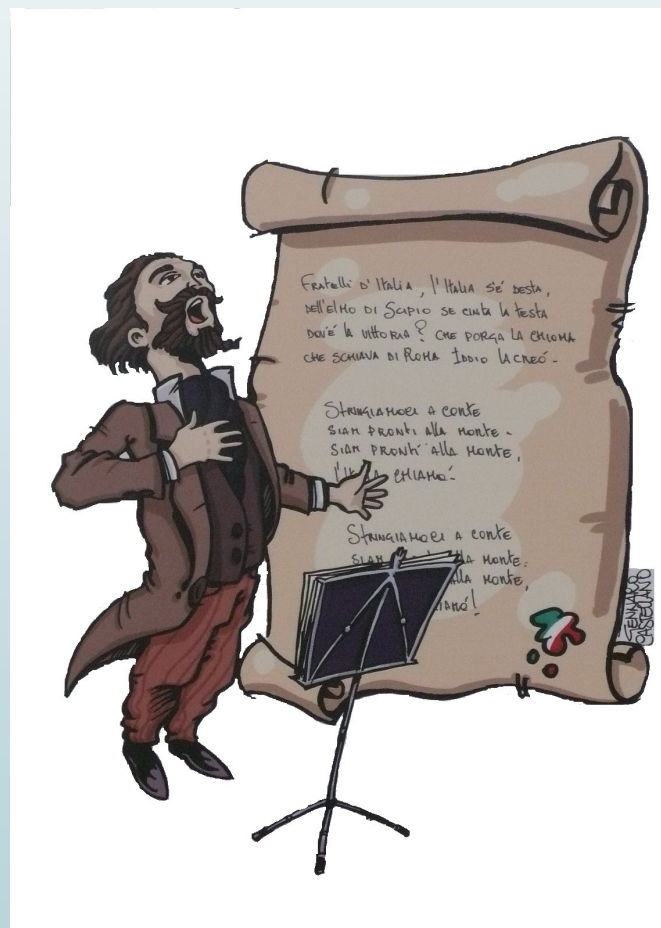 Fratelli d'Italia, l'Italia s'è desta,
dell'elmo di Scipio se cinta la testa
dov'è la vittoria? che porga la chioma
che schiava di Roma Iddio la creó.
Stringiamoci a corte
siam pronti alla morte.
siam pronti alla morte,
chiamó.
Stringiamoci a corte
siam morte.
alla morte,
Gennaro
Castellano